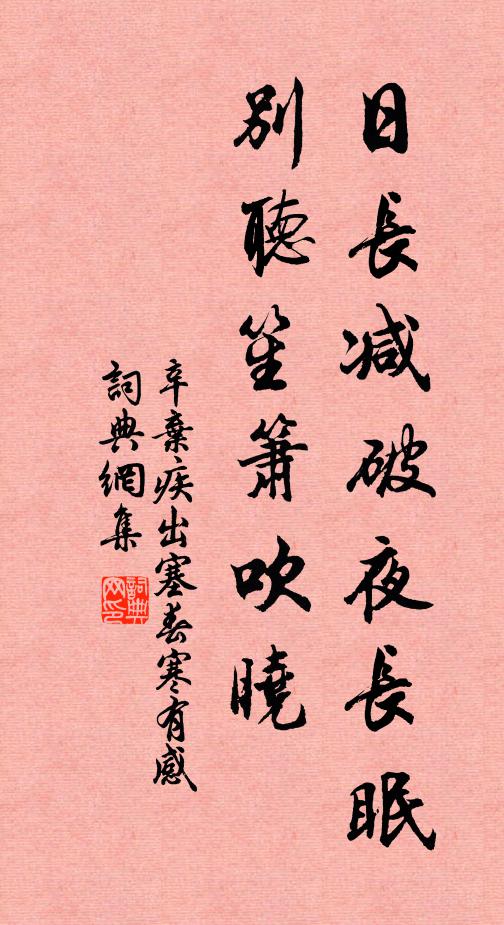 日長減破夜長眠
別聽笙簫吹曉
辛棄疾出塞春寒有感
詞典網集
詞典網印